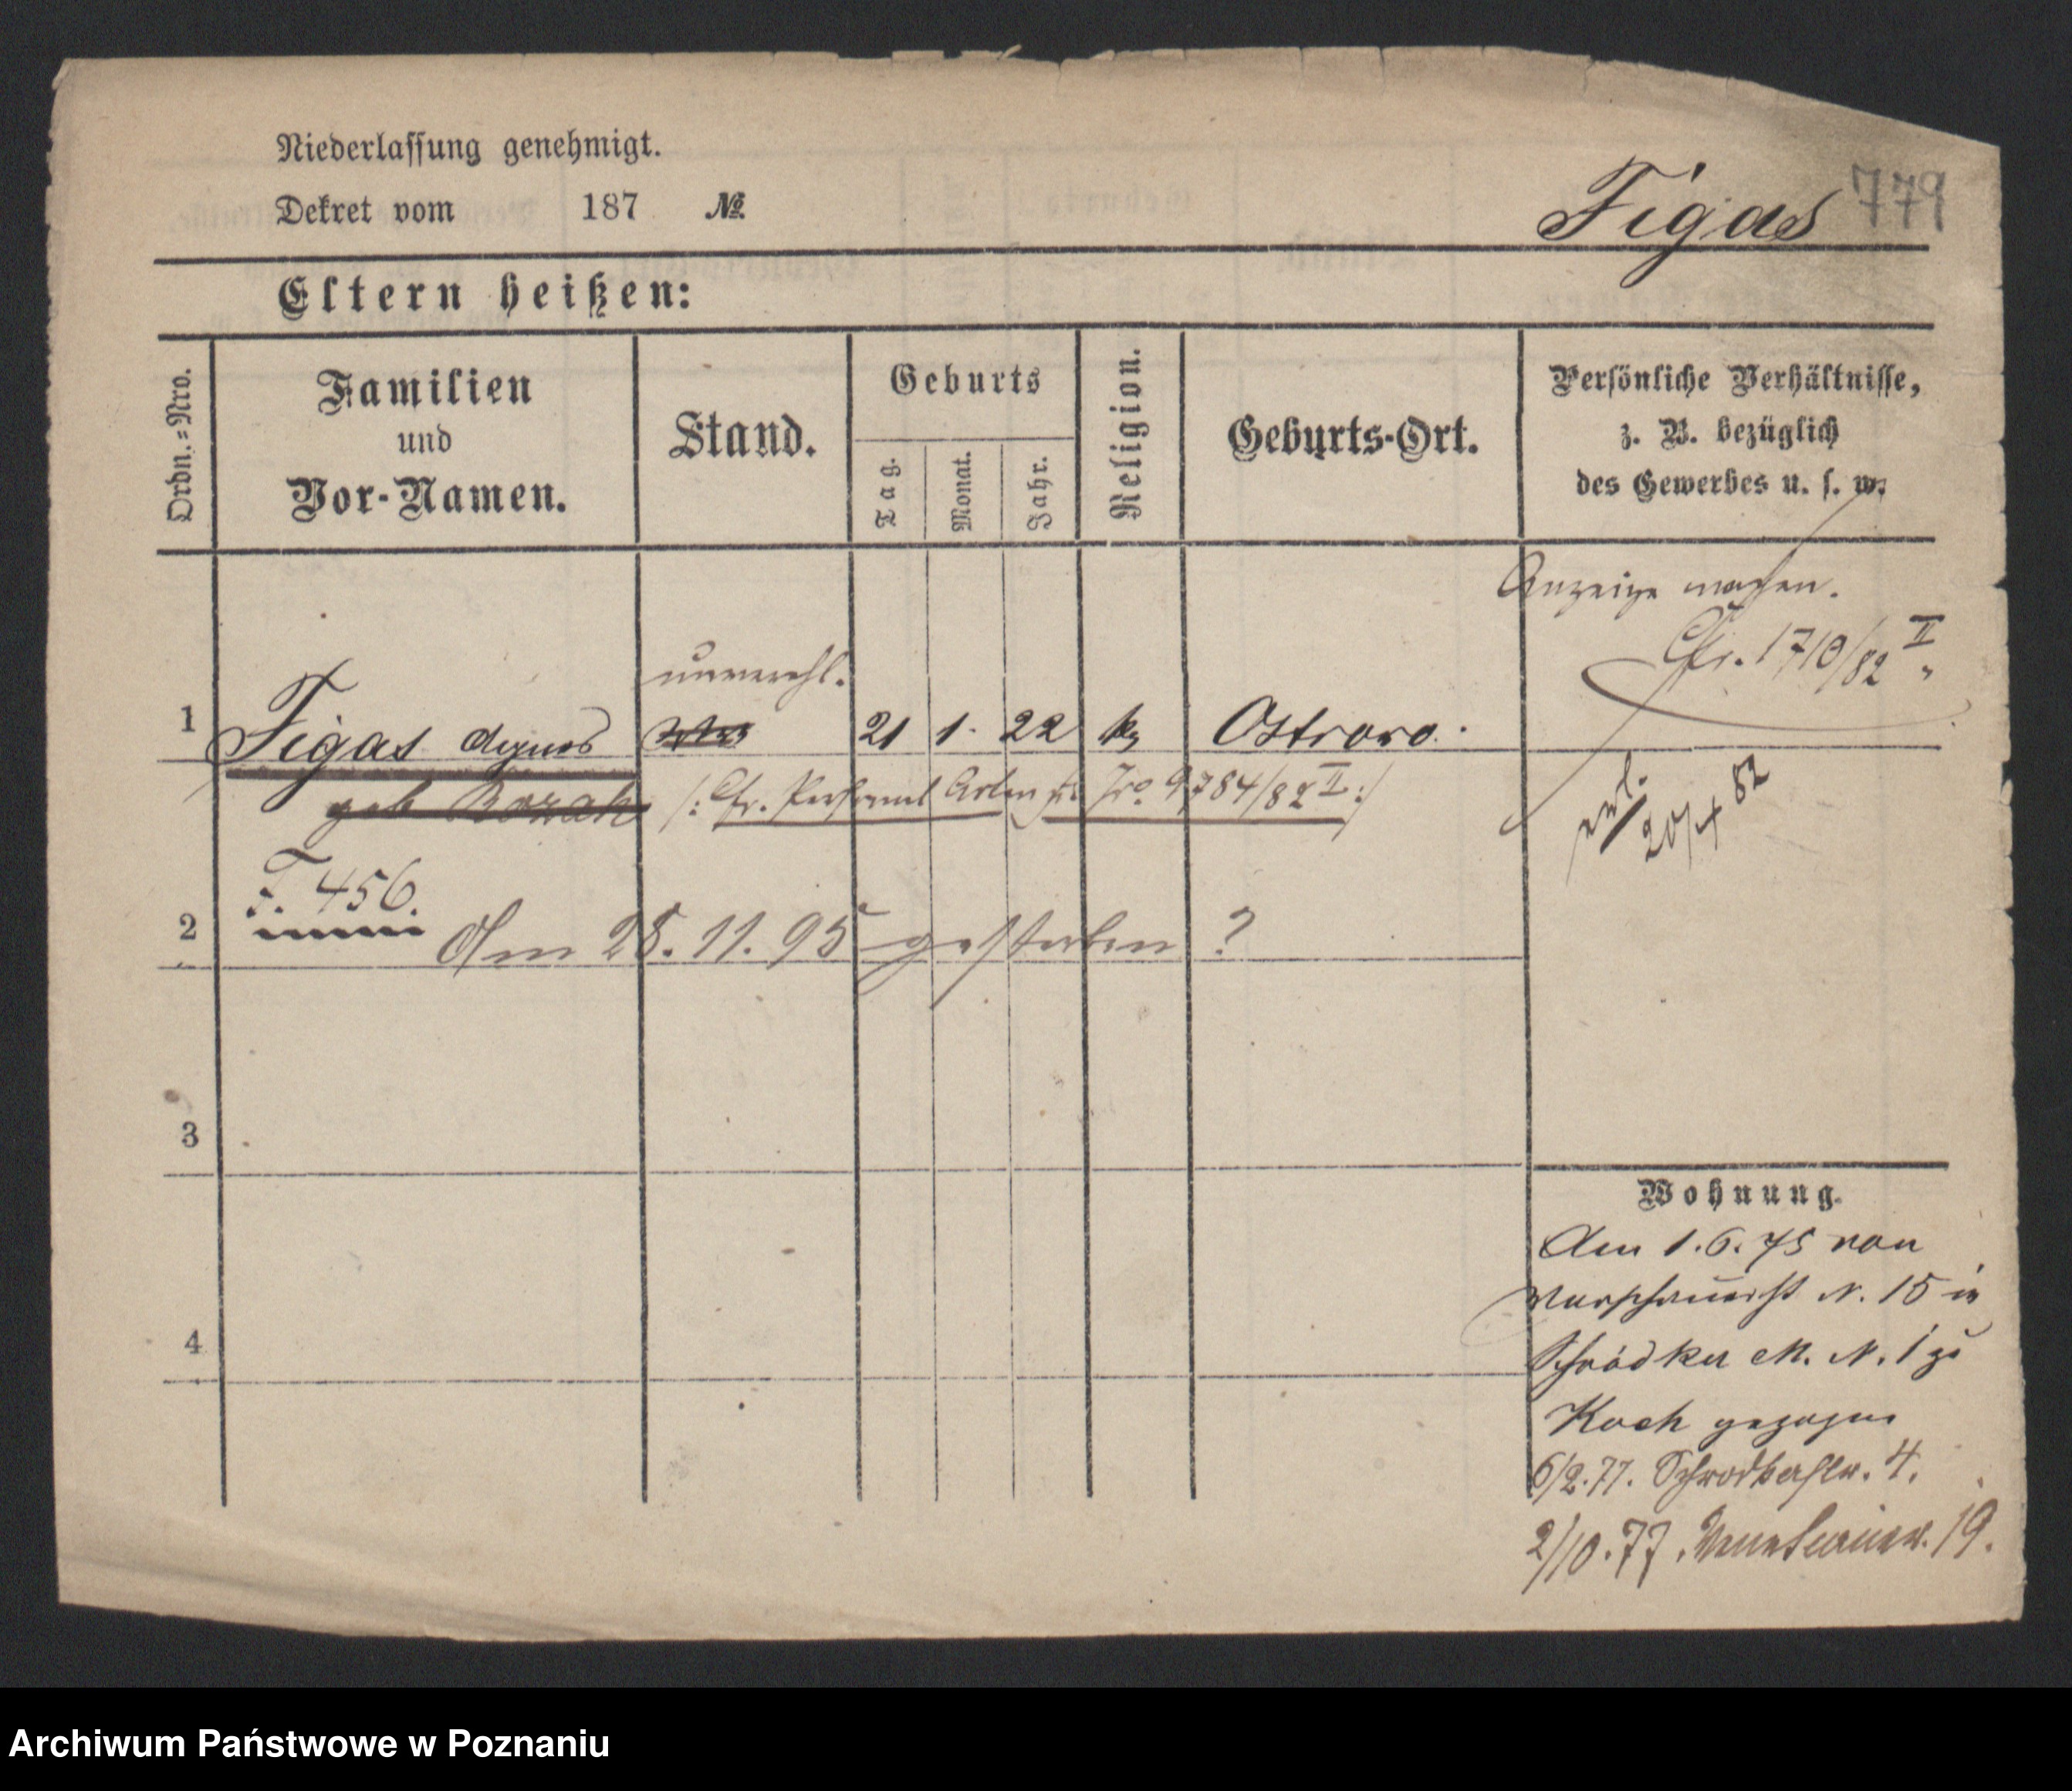 Niederlassung genehmigt.
Dekret vom 187 №
Figas 779
Eltern heißen:
Ordn.=Nro.
Familien
und
Vor-Namen.
Stand.
Geburts
Tag.
Monat.
Jahr.
Religion.
Geburts-Ort.
Persönliche Verhältnisse,
z. B. bezüglich
des Gewerbes u. s. w.
Anzeige machen.
Cfr. 1710/82 II
unverehl.
1 Figas Agnes 21 1. 22 k Ostrowo.
geb
/: Cfr. Personal Acten Nro. 9784/82 II :/
20/4 82
F. 456.
2 Am 28. 11. 95 gestorben ?
3
4
Wohnung.
Am 1. 6. 75 von
Warschauerst N. 15 in
Schrodker M. N. 1 zu
Koch gezogen
6/2. 77. Schrodkerstr. 4.
2/10. 77. Venetianer. 19.
Archiwum Państwowe w Poznaniu